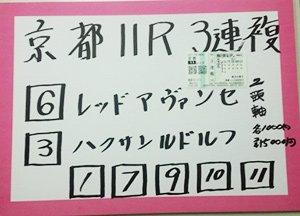 京都11R 3連複
6 レッドアヴァンセ
3 ハクサンルドルフ
1 7 9 10 11
2頭軸
各1000円
計5000円